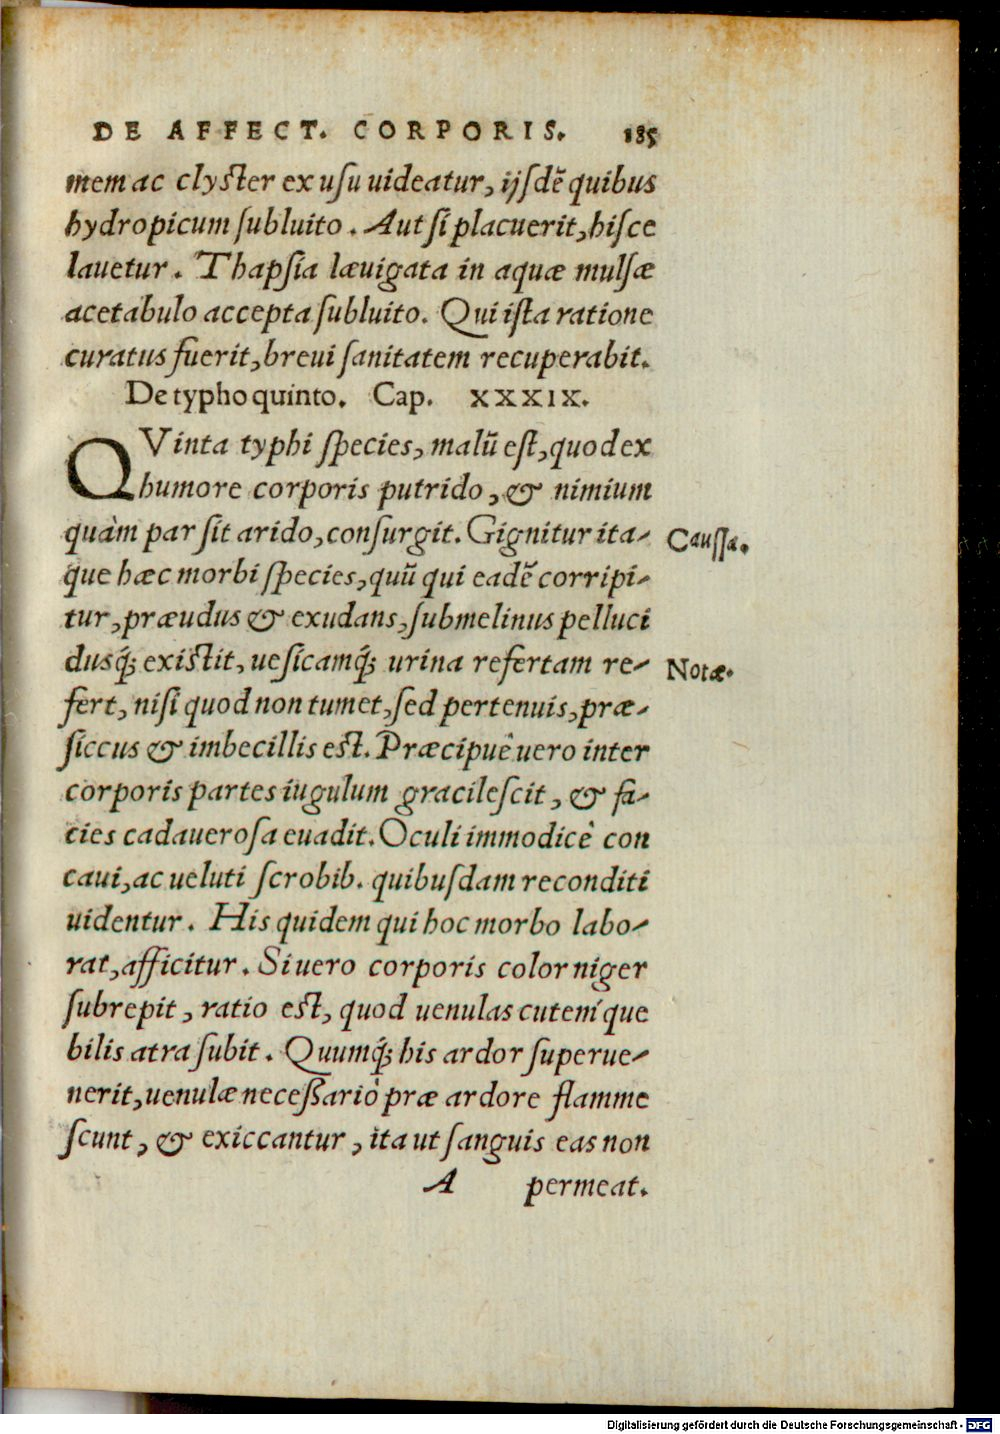 DE AFFECT. CORPORIS. 185
mem ac clyſter ex uſu uideatur, ijſdẽ quibus
hydropicum ſubluito. Aut ſi placuerit, hiſce
lauetur. Thapſia læuigata in aquæ mulſæ
acetabulo accepta ſubluito. Qui iſta ratione
curatus fuerit, breui ſanitatem recuperabit.
De typho quinto. Cap. XXXIX.
QVinta typhi ſpecies, malũ eſt, quod ex
humore corporis putrido, & nimium
quàm par ſit arido, conſurgit. Gignitur ita-
Cauſſa.
que hæc morbi ſpecies, quũ qui eadẽ corripi-
tur, præudus & exudans, ſubmelinus pelluci
dusq́; exiſtit, ueſicamq́; urina refertam re-
Notæ.
fert, niſi quod non tumet, ſed pertenuis, præ-
ſiccus & imbecillis eſt. Præcipuè uero inter
corporis partes iugulum gracileſcit, & fa-
cies cadaueroſa euadit. Oculi immodicè con
caui, ac ueluti ſcrobib. quibuſdam reconditi
uidentur. His quidem qui hoc morbo labo-
rat, afficitur. Si uero corporis color niger
ſubrepit, ratio eſt, quod uenulas cutemq́ue
bilis atra ſubit. Quumq́; his ardor ſuperue-
nerit, uenulæ neceßariò præ ardore flamme
ſcunt, & exiccantur, ita ut ſanguis eas non
A permeat.
Digitalisierung gefördert durch die Deutsche Forschungsgemeinschaft - DFG